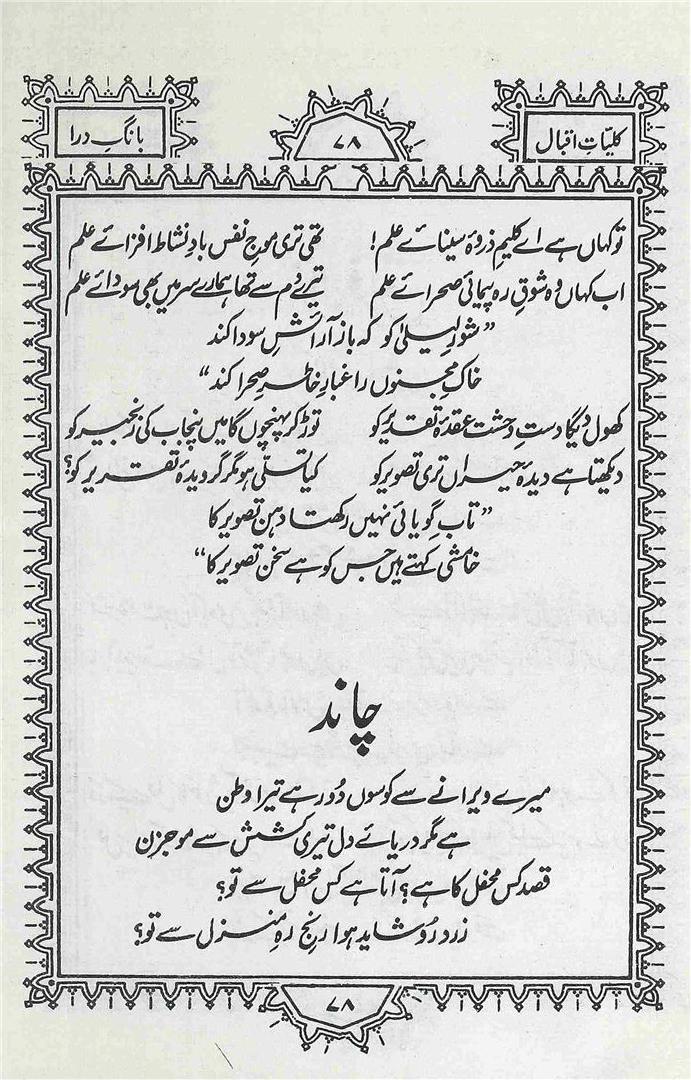 کلیاتِ اقبال
۷۸
بانگِ درا
تو کہاں ہے اے کلیمِ ذروۂ سینائے علم! تھی تری موجِ نفس بادِ نشاط افزائے علم
اب کہاں وہ شوقِ رہ پیمائی صحرائے علم تیرے دم سے تھا ہمارے سر میں بھی سودائے علم
”شورِ لیلیٰ کو کہ باز آرائشِ سودا کند
خاکِ مجنوں را غبارِ خاطرِ صحرا کند“
کھول دیگا دستِ وحشت عقدۂ تقدیر کو توڑ کر پہنچوں گا میں پنجاب کی زنجیر کو
دیکھتا ہے دیدۂ حیراں تری تصویر کو کیا تسلّی ہو مگر گرویدۂ تقدیر کو؟
”تابِ گویائی نہیں رکھتا دہن تصویر کا
خامشی کہتے ہیں جس کو ہے سخن تصویر کا“
چاند
میرے ویرانے سے کوسوں دُور ہے تیرا وطن
ہے مگر دریائے دل تیری کشش سے موجزن
قصد کس محفل کا ہے؟ آتا ہے کس محفل سے تو؟
زرد رُو شاید ہوا رنجِ رہِ منزل سے تو؟
۷۸